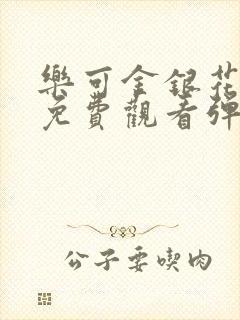 樂可金銀花
免費觀看彈
公子要喫肉